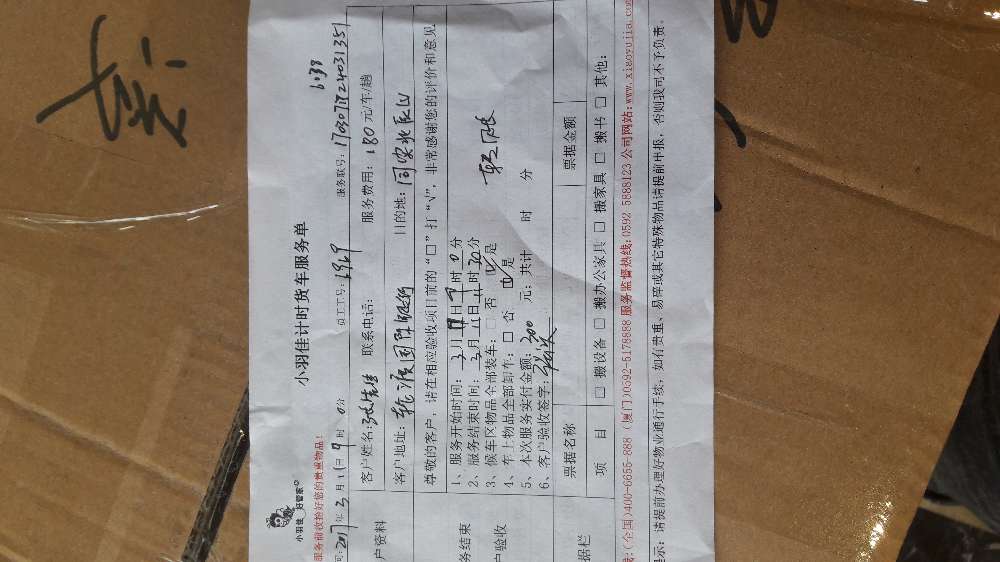 小羽佳计时货车服务单
小羽佳 好管家
服务前收捡好您的贵重物品!
6:38
2017年3月11日9时0分 员工工号: 6969 服务联号:
客户姓名: 张先生 联系电话: 服务费用: 180元/车/趟
户资料
客户地址: 目的地:
尊敬的客户,请在相应验收项目前的“□”打“√”,非常感谢您的评价和意见
1、服务开始时间: 3月11日9时0分
2、服务结束时间: 3月11日11时30分
3、候车区物品全部装车: □否 ☑是
4、车上物品全部卸车: □否 ☑是
5、本次服务实付金额: 300元; 共计 时 分
6、客户验收签字:
务结束
户验收
票据名称 票据金额
据栏
项 目 □搬设备 □搬办公家具 □搬家具 □搬书 □其他:
线:(全国)400-6666-888 (厦门)0592-5178888 服务监督热线:0592 5888123 公司网站:www.xiaoyujia.com
提示:请提前办理好物业通行手续,如有贵重、易碎或其它特殊物品请提前申报,否则我司不予负责。